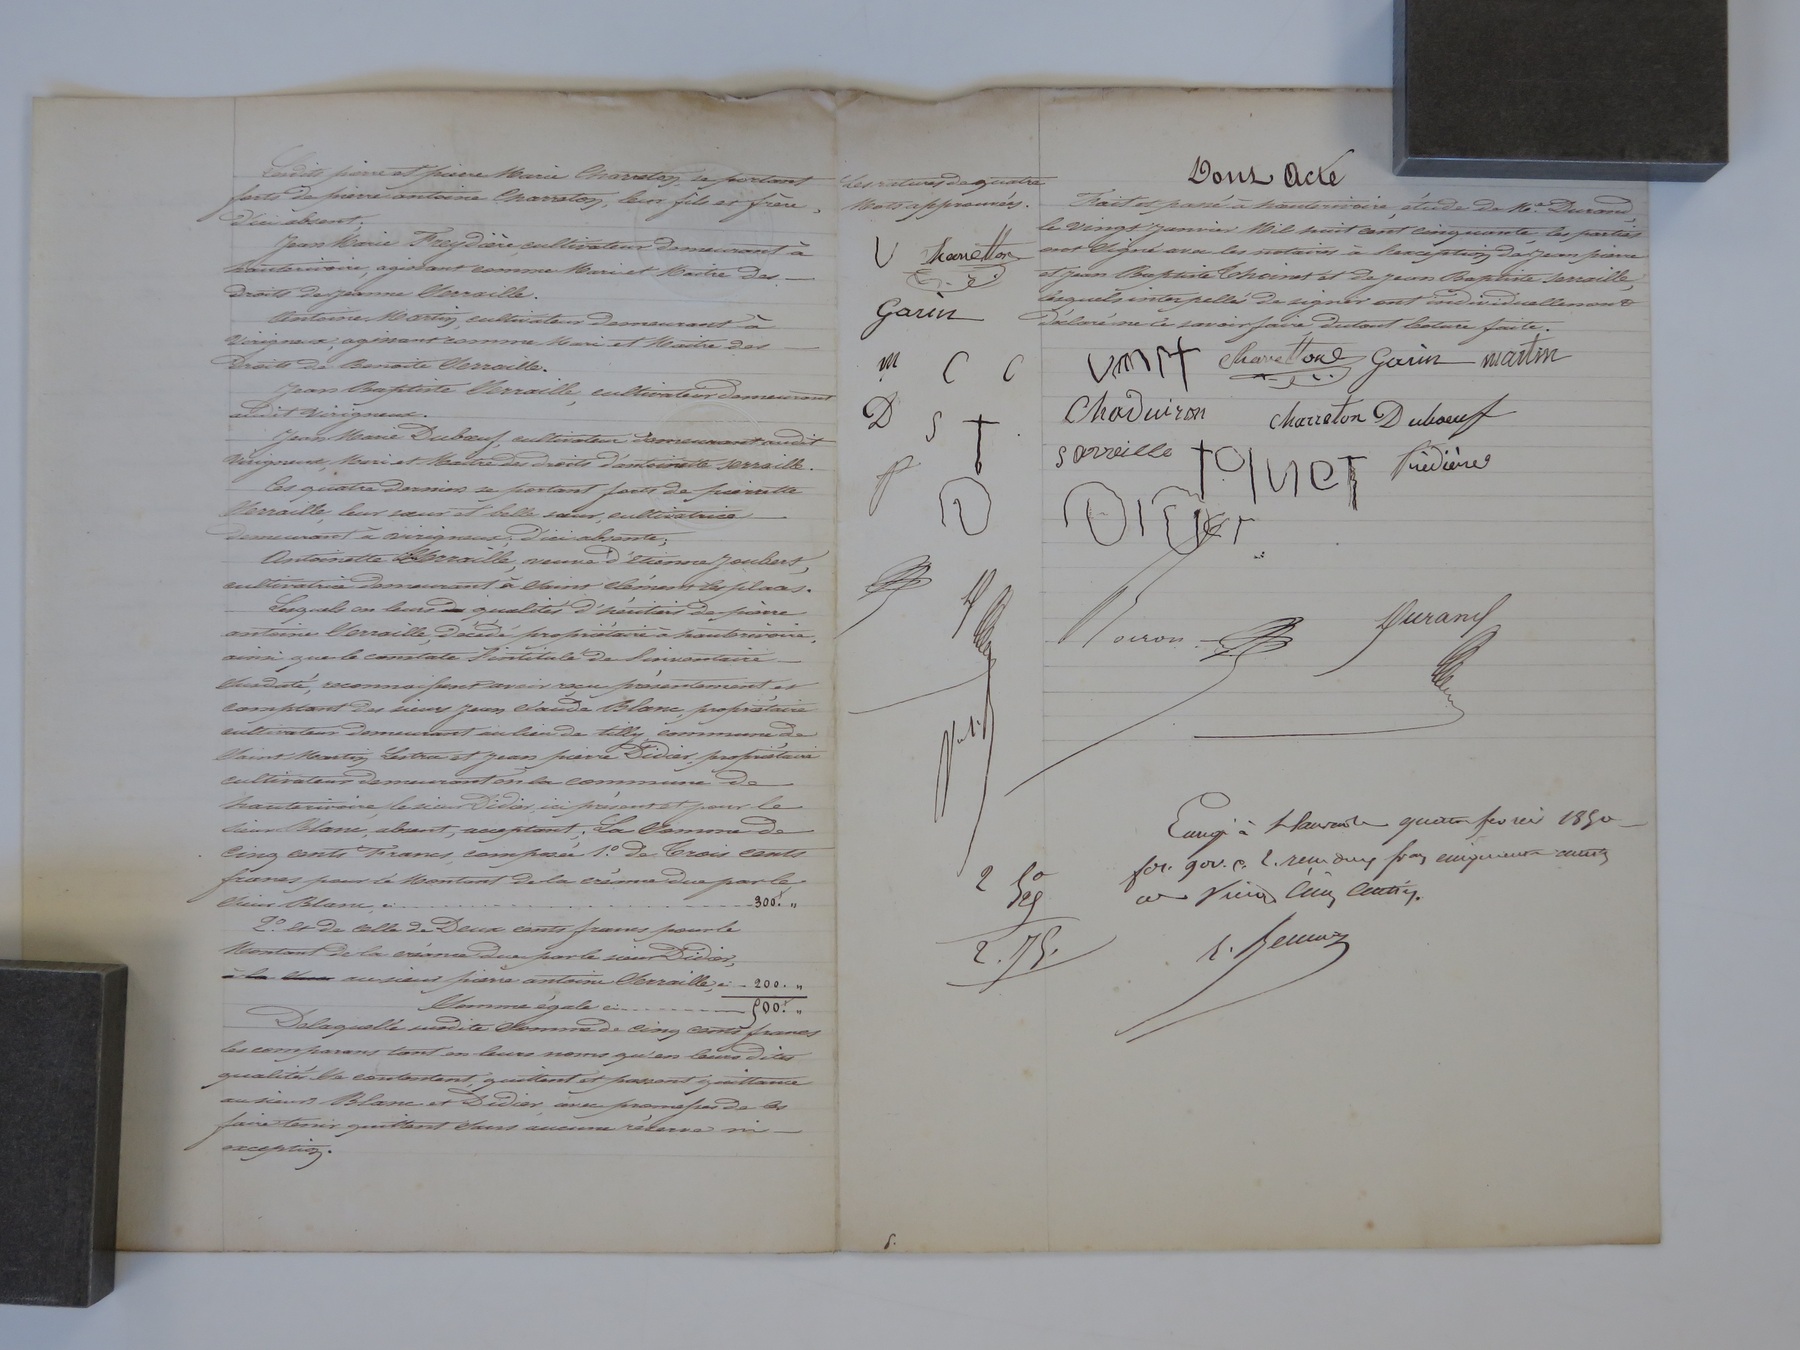 Lesdits pierre et pierre Marie Charreton, se portant
forts de pierre antoine Charreton, leur fils et frère,
d'ici absent,
Jean Marie Freydière, cultivateur demeurant à
hauterivoire, agissant comme Mari et Maître des
droits de jeanne Serraille.
Antoine Martin, cultivateur demeurant à
Virigneux, agissant comme Mari et Maître des
droits de Benoite Serraille.
Jean Baptiste Serraille, cultivateur demeurant
audit Virigneux.
Jean Marie Dubœuf, cultivateur demeurant audit
Virigneux, Mari et Maître des droits d'antoinette Serraille.
Ces quatre derniers se portant forts de pierrette
Serraille, leur sœur et belle sœur, cultivatrice
demeurant à Virigneux, d'ici absente,
Antoinette Serraille, veuve d'Etienne Joubert,
cultivatrice demeurant à Saint Clément les places.
Lesquels en leurs qualités d'héritiers de pierre
antoine Serraille, décédé propriétaire à hauterivoire,
ainsi que le constate l'intitulé de l'inventaire
susdaté, reconnaissent avoir reçu présentement et
comptant des sieurs Jean Claude Blanc, propriétaire
cultivateur demeurant au lieu de tilly, commune de
Saint Martin Lestra et Jean pierre Didier, propriétaire
cultivateur demeurant en la commune de
hauterivoire, le sieur Didier, ici présent et pour le
sieur Blanc, absent, acceptant, La Somme de
Cinq cents Francs, composée 1.° de Trois cents
francs pour le Montant de la créance due par le
sieur Blanc, ci 300.f "
2.° et de celle de Deux cents francs pour le
Montant de la créance due par le sieur Didier,
au sieur pierre antoine Serraille, ci 200. "
Somme égale ci 500.f "
De laquelle susdite Somme de cinq cents francs
les comparans tant en leurs noms qu'en leurs dites
qualités se contentent, quittent et passent quittance
au sieurs Blanc et Didier, avec promesses de les
faire tenir quittent sans aucune réserve ni
exception.
Les ratures de quatre
Mots approuvés.
V Charretton
Garin
m C C
D S T
f
D
Dont Acte
Fait et passé à hauterivoire, étude de Me. Durand,
le vingt janvier Mil huit cent cinquante, les parties
ont signé avec les notaires à l'exception de Jean pierre
et Jean Baptiste Thonet et de Jean Baptiste Serraille,
lesquels interpellés de signer ont individuellement
déclaré ne le savoir faire, dutout lecture faite.
Charettone Garin martin
Chaduiron Charreton Duboeuf
Sarreille tonet frédière
Didier
Durand
2 50
2.75.
1850